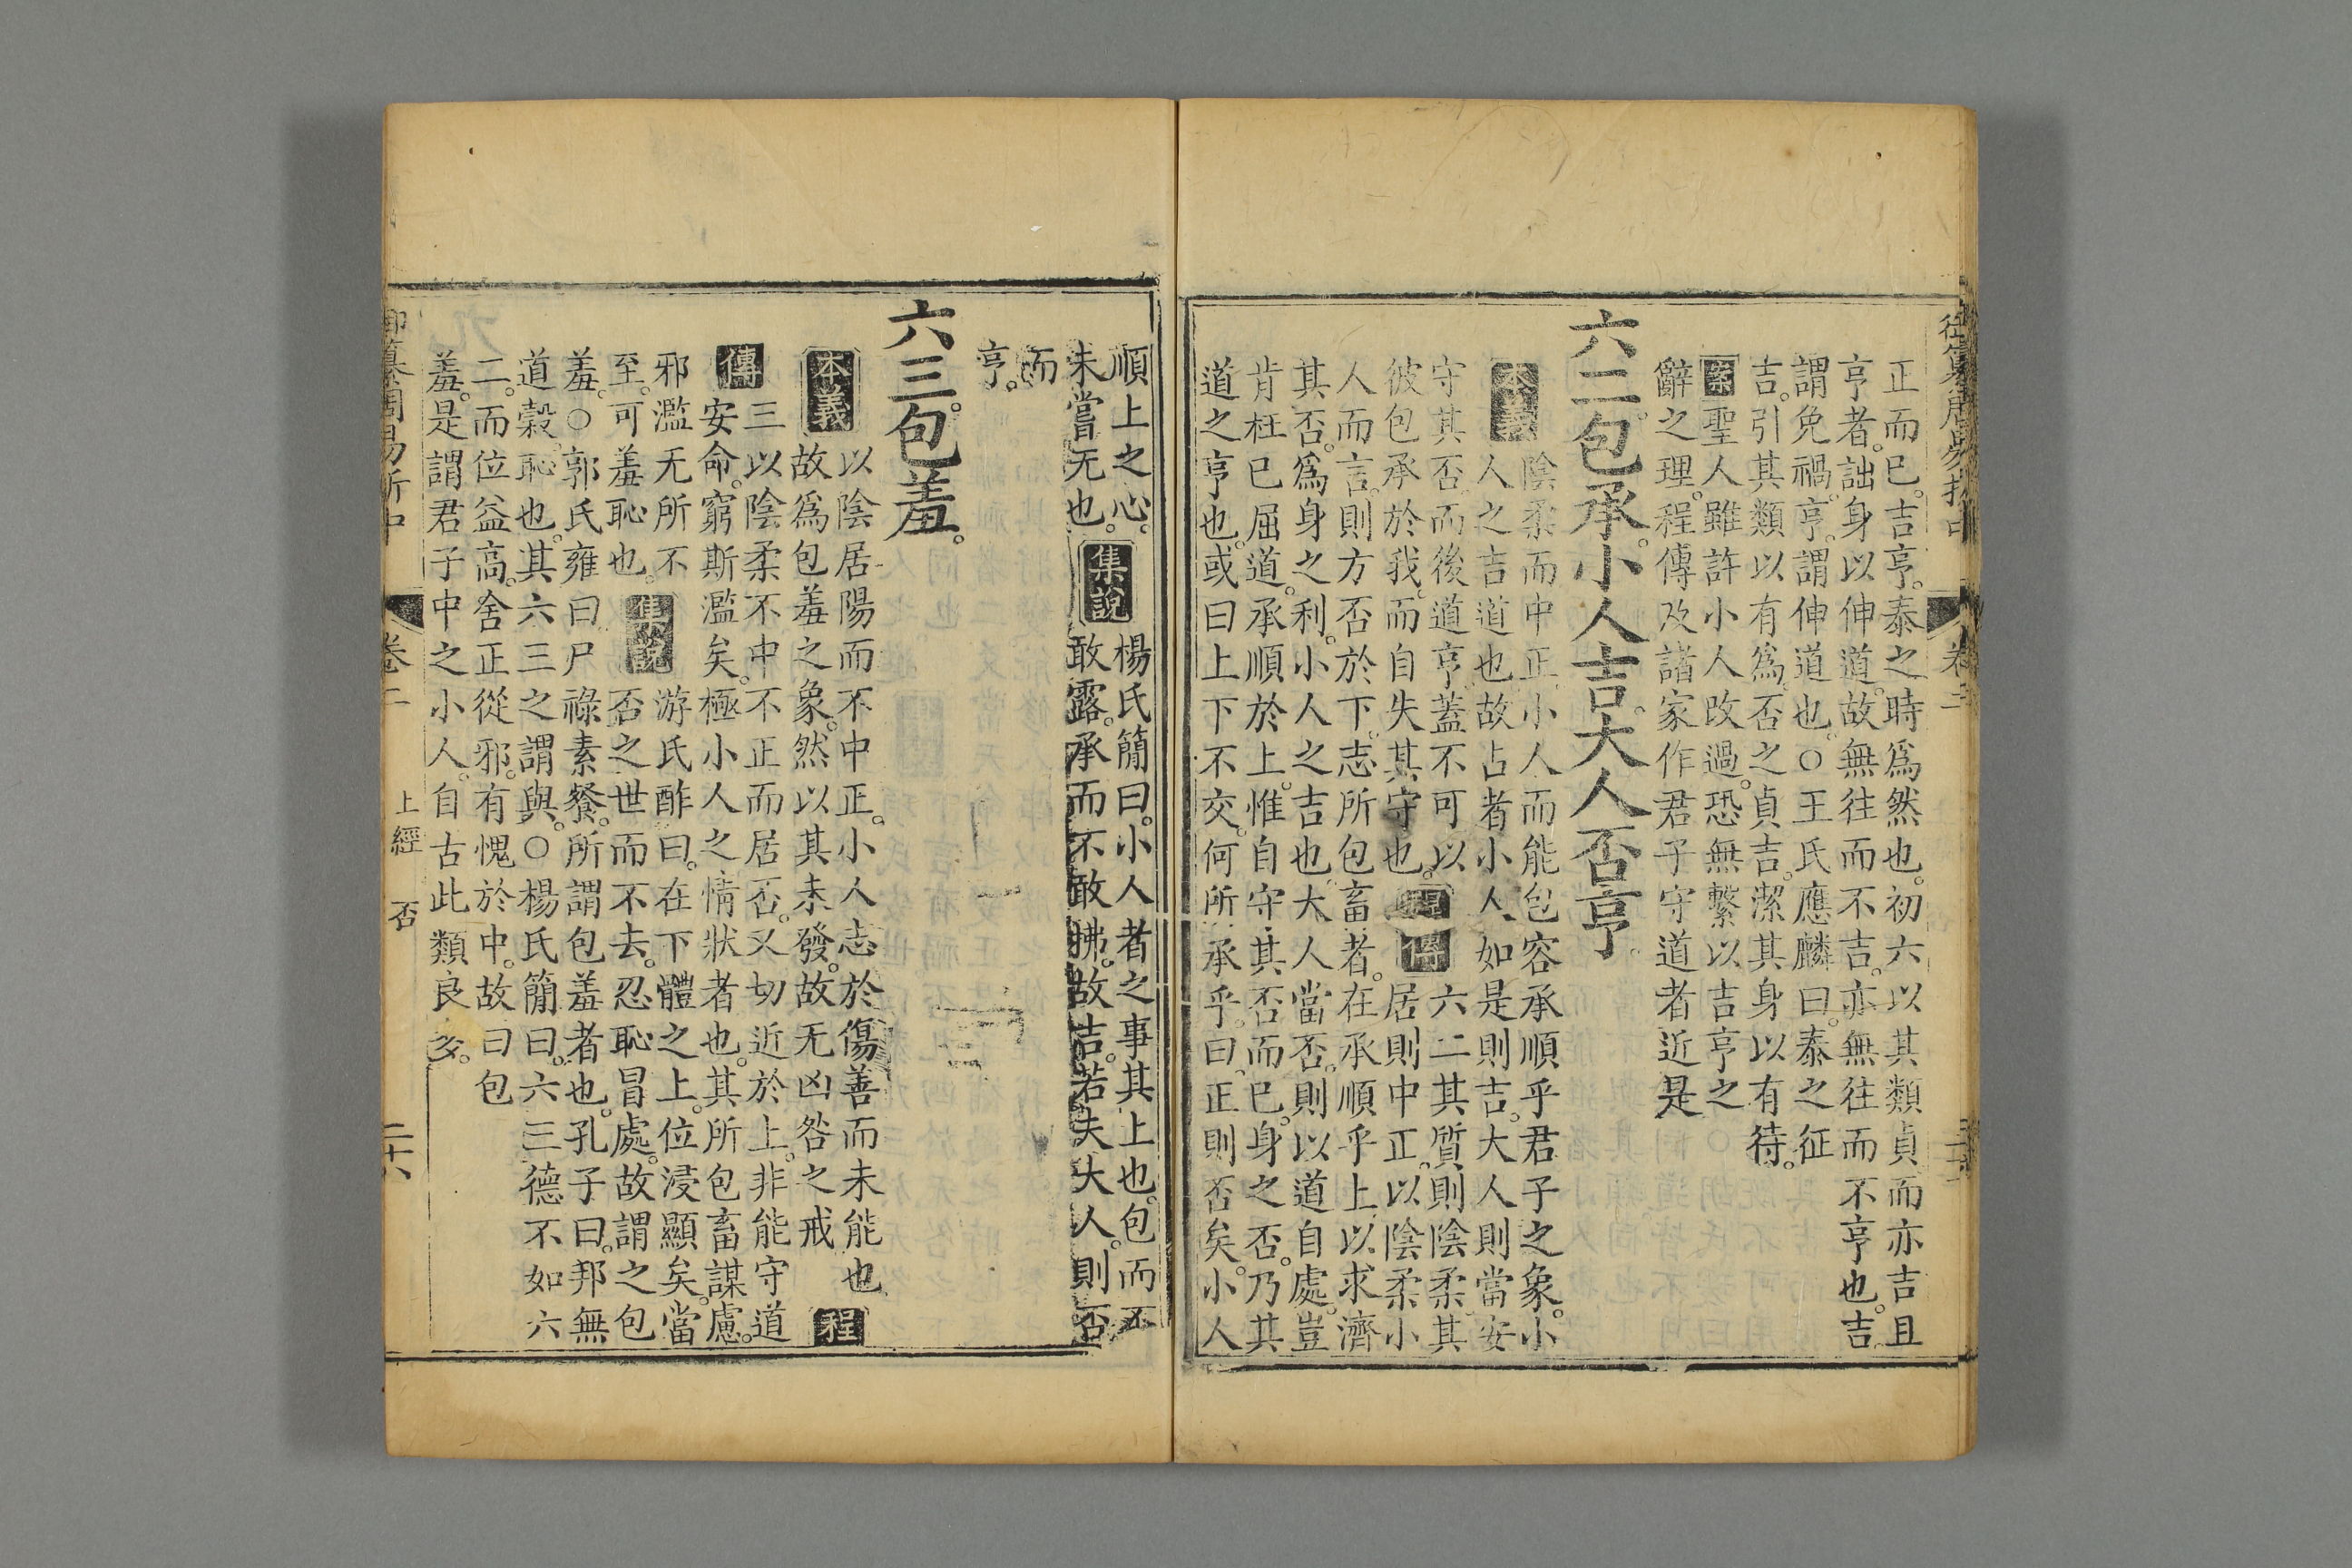 正而已。吉亨。泰之時爲然也。初六以其類貞而亦吉且
亨者。詘身以伸道。故無往而不吉。亦無往而不亨也。吉
謂免禍。亨。謂伸道也。○王氏應麟曰。泰之征
吉。引其類以有爲。否之貞吉。潔其身以有待。
案聖人雖許小人改過。恐無繫以吉亨之
辭之理。程傳及諸家作君子守道者近是
六二。包承。小人吉。大人否亨。
本義
陰柔而中正。小人而能包容承順乎君子之象。小
人之吉道也。故占者小人如是則吉。大人則當安
守其否。而後道亨。蓋不可以
彼包承於我。而自失其守也。
程傳
六二其質則陰柔。其
居則中正。以陰柔小
人而言。則方否於下。志所包畜者。在承順乎上以求濟
其否。爲身之利。小人之吉也。大人當否。則以道自處。豈
肯枉已屈道。承順於上。惟自守其否而已。身之否。乃其
道之亨也。或曰上下不交。何所承乎。曰正則否矣。小人
順上之心。
未嘗无也。
集說
楊氏簡曰。小人者之事其上也。包而不
敢露。承而不敢拂。故吉。若夫大人。則否
而
亨。
六三。包羞。
本義
以陰居陽而不中正。小人志於傷善而未能也
故爲包羞之象。然以其未發。故无凶咎之戒
程
傳
三以陰柔不中不正而居否。又切近於上。非能守道
安命。窮斯濫矣。極小人之情狀者也。其所包畜謀慮。
邪濫无所不
至。可羞恥也。
集說
游氏酢曰。在下體之上。位浸顯矣。當
否之世而不去。忍恥冒處。故謂之包
羞。○郭氏雍曰尸祿素餐。所謂包羞者也。孔子曰。邦無
道穀。恥也。其六三之謂與。○楊氏簡曰。六三德不如六
二。而位益高。舍正從邪。有愧於中。故曰包
羞。是謂君子中之小人。自古此類良多。
卷二
上經
否
二十六